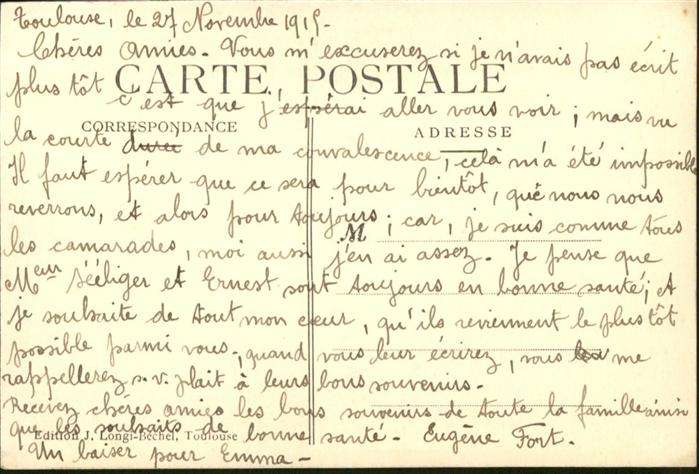 Toulouse, le 27 Novembre 1915.
Chères Amies. Vous m'excuserez si je n'avais pas écrit
plus tôt
CARTE POSTALE
c'est que j'espérai aller vous voir ; mais vu
CORRESPONDANCE
ADRESSE
la courte durée de ma convalescence, celà m'a été impossible
Il faut espérer que ce sera pour bientôt, que nous nous
reverrons, et alors pour toujours ; car, je suis comme tous
M
les camarades, moi aussi j'en ai assez. Je pense que
Meur Sééliger et Ernest sont toujours en bonne santé ; et
je souhaite de tout mon cœur, qu'ils reviennent le plus tôt
possible parmi vous., quand vous leur écrirez, vous me
rappellerez s.v. plait à leurs bons souvenirs.
Recevez chères amies les bons souvenirs de toute la famille ainsi
que les souhaits de bonne santé. Eugène Fort.
Edition J. Longi-Bechel, Toulouse
Un baiser pour Emma –